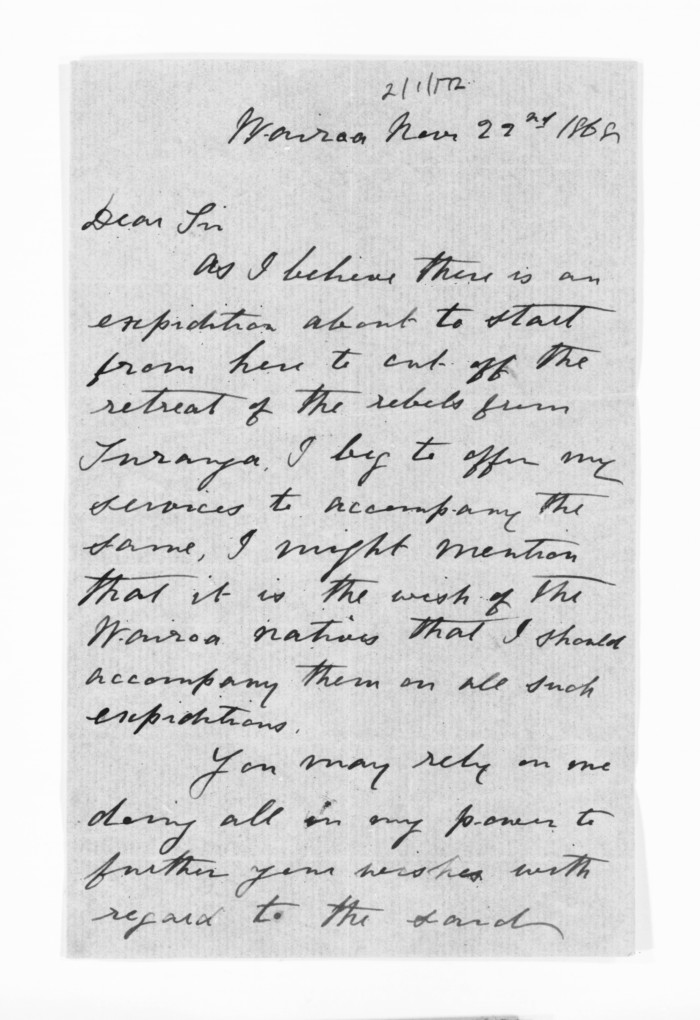 2/1/172
Wairoa Novr 22nd 1868
Dear Sir
As I believe there is an
expedition about to start
from here to cut off the
retreat of the rebels from
Turanga, I beg to offer my
services to accompany the
same, I might mention
that it is the wish of the
Wairoa natives that I should
accompany them on all such
expeditions.
You may rely on me
doing all in my power to
further your wishes with
regard to the said